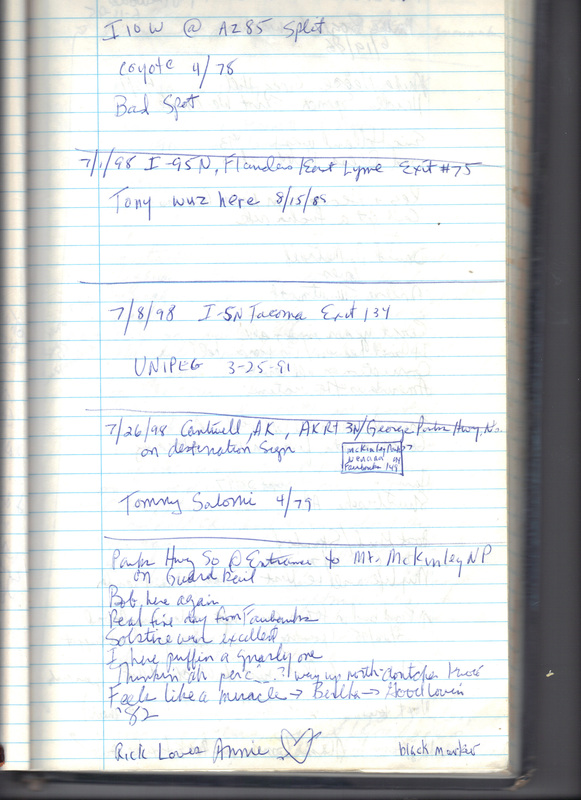 I 10 W @ AZ 85 Split
Coyote 4/78
Bad Spot
7/1/98 I-95N, Flanders/East Lyme Exit #75
Tony wuz here 8/15/89
7/8/98 I-5N Tacoma Exit 134
UNIPEG 3-25-91
7/26/98 Cantwell, AK, AKRT 3N/George Parks Hwy. No.
on destination Sign
McKinley Park
Nenana
Fairbanks
Tommy Salomi 4/79
Parks Hwy So @ Entrance to Mt. McKinley NP
on Guard Rail
Bob, here again
Real fine day from Fairbanks
Solstice was excellent
I here puffin a gnarly one
Thinkin' ah way up north dontcha know
Feels like a miracle → → Good lovin
'82
Rick Loves Annie
black marker